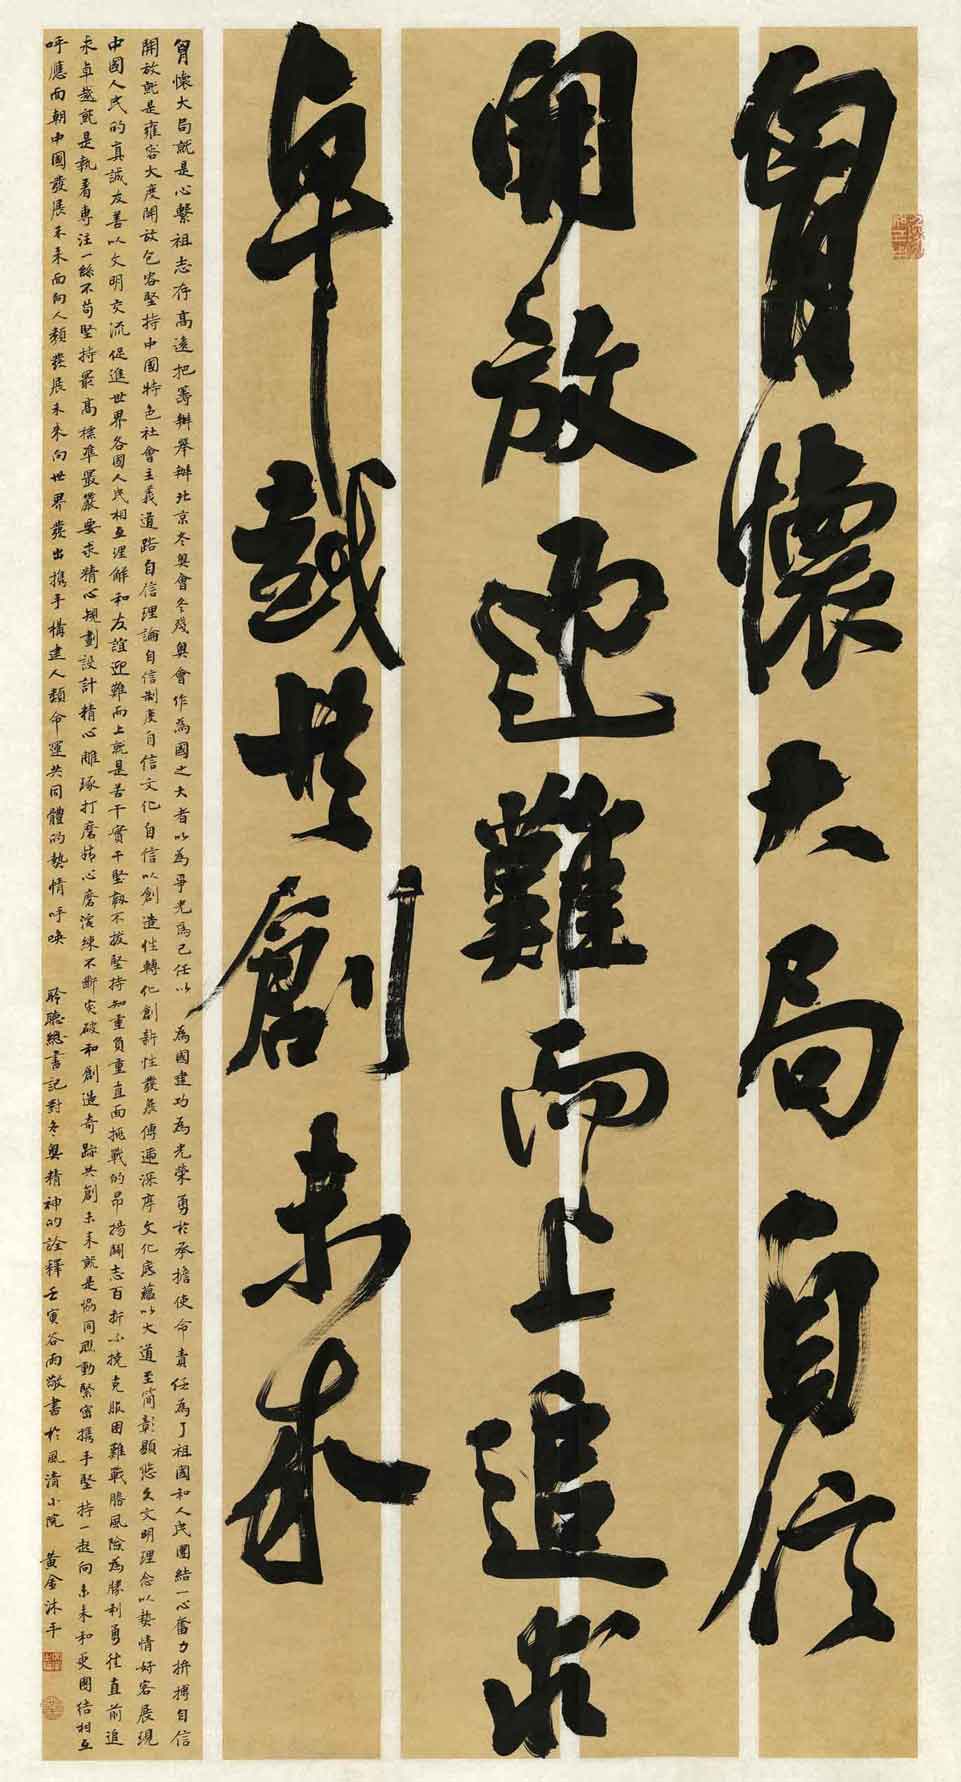 胷懷大局自信
開放迎難而上追求
卓越共創未来
胷懷大局就是心繫祖國志存高遠把籌辦舉辦北京冬奧會冬殘奧會作為國之大者以為爭光為己任以為國建功為光榮勇於承擔使命責任為了祖國和人民團結一心奮力拚搏自信
開放就是雍容大度開放包容堅持中國特色社會主義道路自信理論自信制度自信文化自信以創造性轉化創新性發展傳遞深厚文化底蘊以大道至简彰顯悠久文明理念以熱情好客展現
中國人民的真誠友善以文明交流促進世界各國人民相互理解和友誼迎難而上就是苦干實干堅韌不拔堅持知重負重直面挑戰的昂揚鬪志百折不撓克服困難戰勝風險為勝利勇往直前追
求卓越就是執着專注一絲不苟堅持最高標準最嚴要求精心規劃設計精心雕琢打磨精心磨演練不斷突破和創造奇跡共創未来就是協同聯動緊密携手堅持一起向未来和更團结相互
呼應面朝中國發展未来面向人類發展未来向世界發出携手構建人類命運共同體的熱情呼唤 聆聽總書記對冬奧精神的詮釋壬寅谷雨敬書於風清小院 黄金沐手